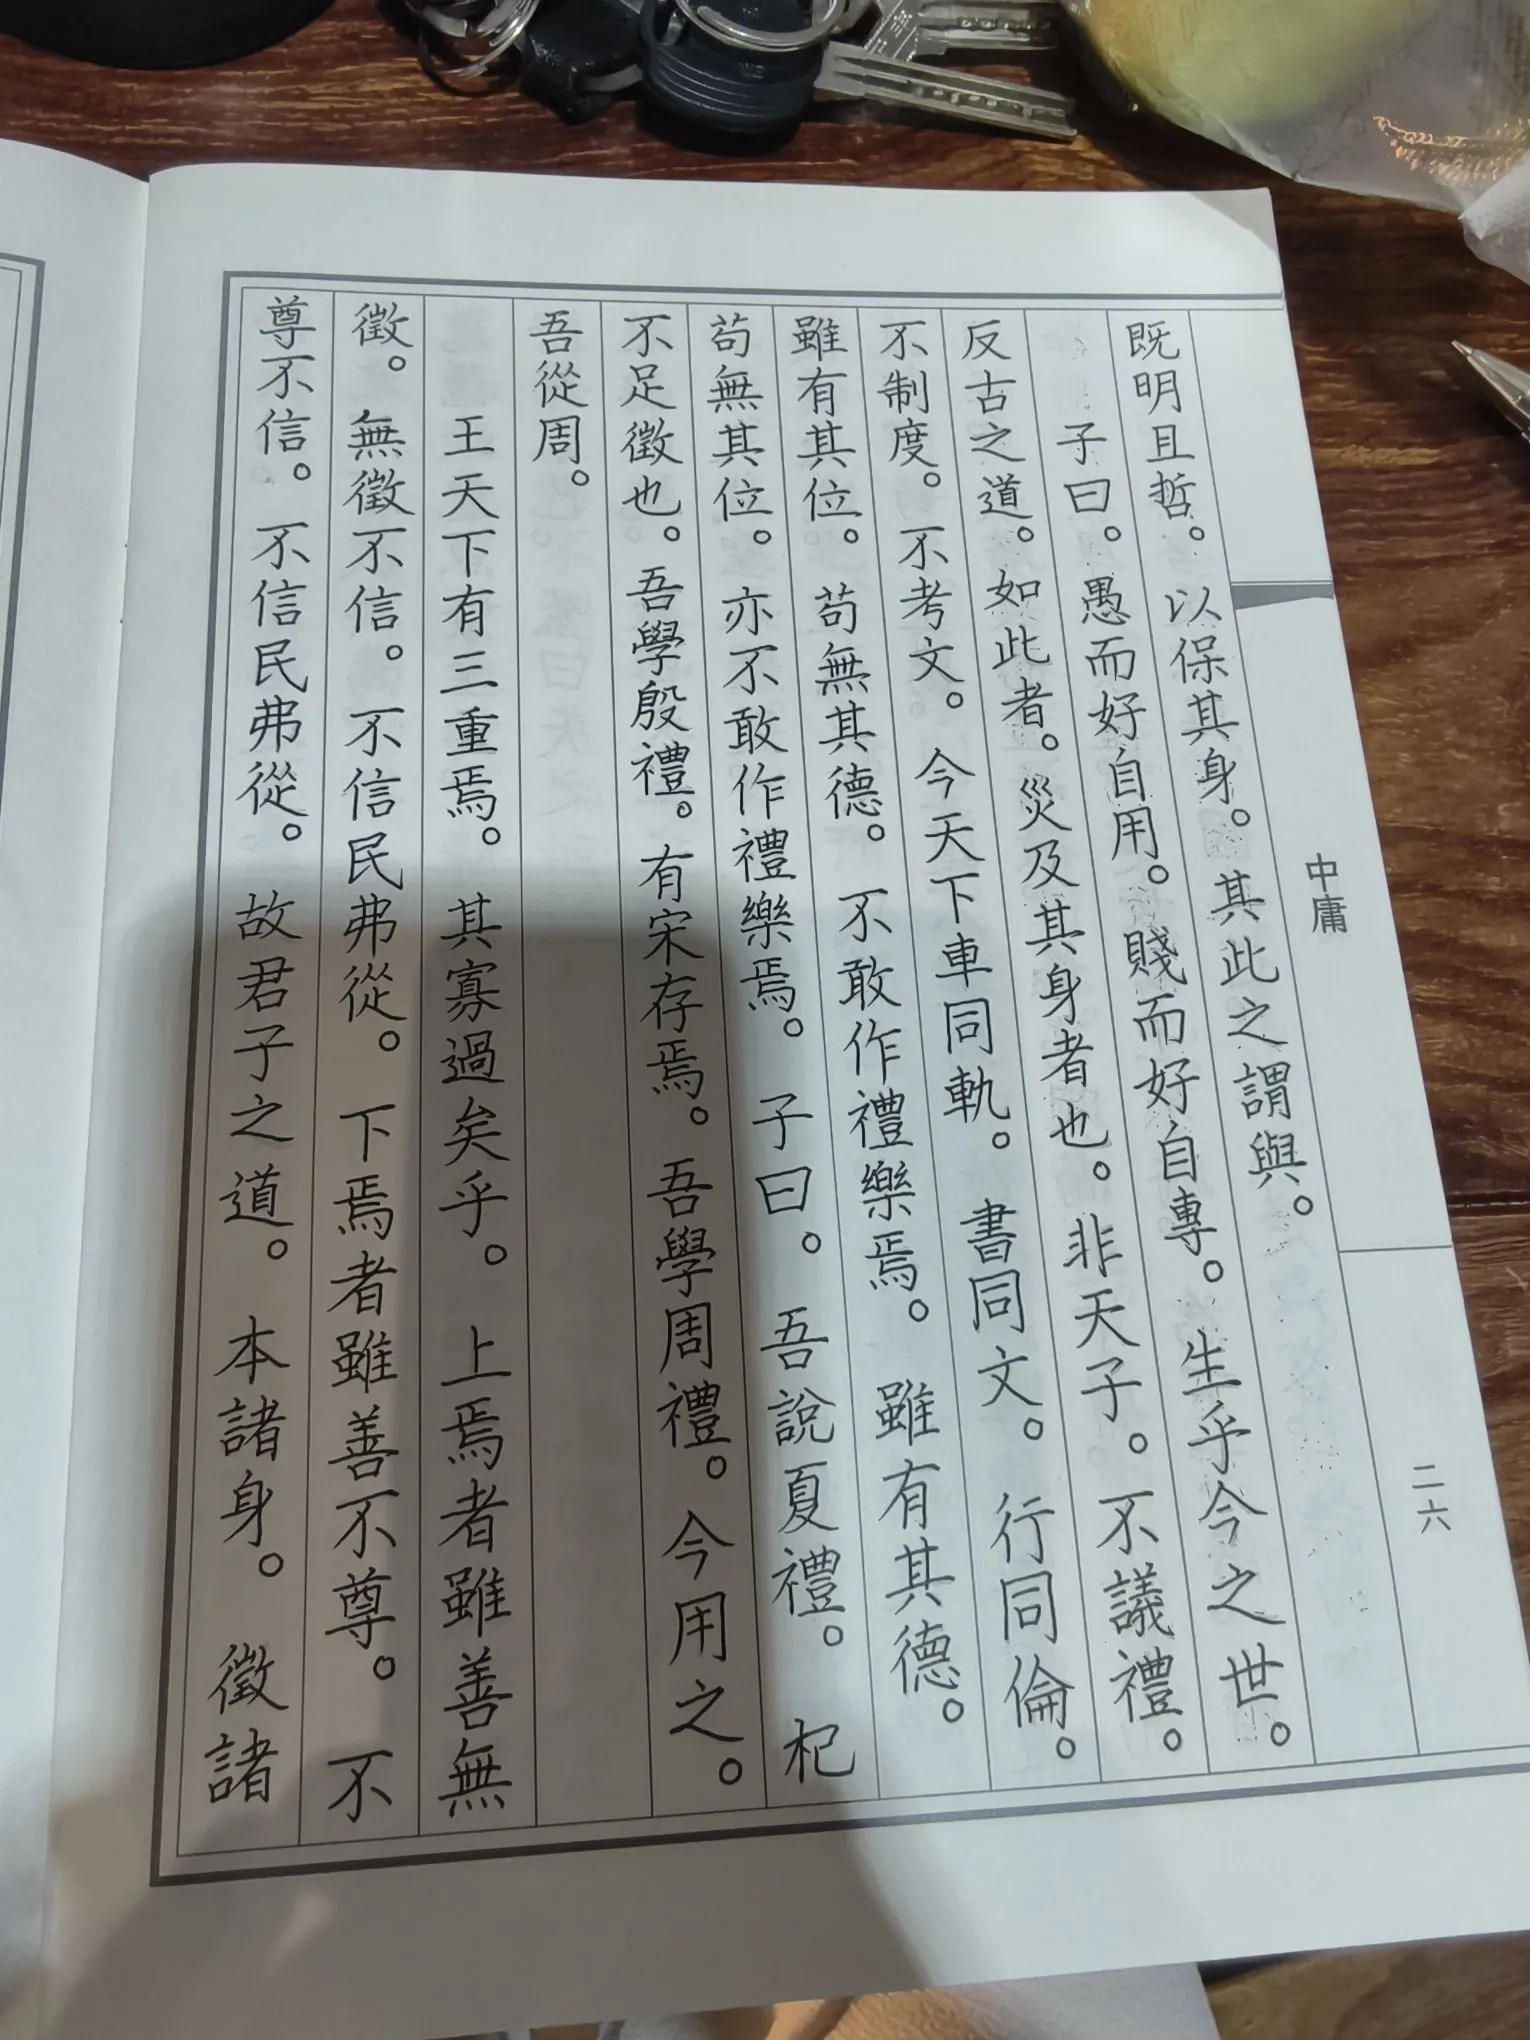 中庸
二六
既明且哲。以保其身。其此之謂與。
子曰。愚而好自用。賤而好自專。生乎今之世。
反古之道。如此者。災及其身者也。非天子。不議禮。
不制度。不考文。今天下車同軌。書同文。行同倫。
雖有其位。苟無其德。不敢作禮樂焉。雖有其德。
苟無其位。亦不敢作禮樂焉。子曰。吾說夏禮。杞
不足徵也。吾學殷禮。有宋存焉。吾學周禮。今用之。
吾從周。
王天下有三重焉。其寡過矣乎。上焉者雖善無
徵。無徵不信。不信民弗從。下焉者雖善不尊。不
尊不信。不信民弗從。故君子之道。本諸身。徵諸